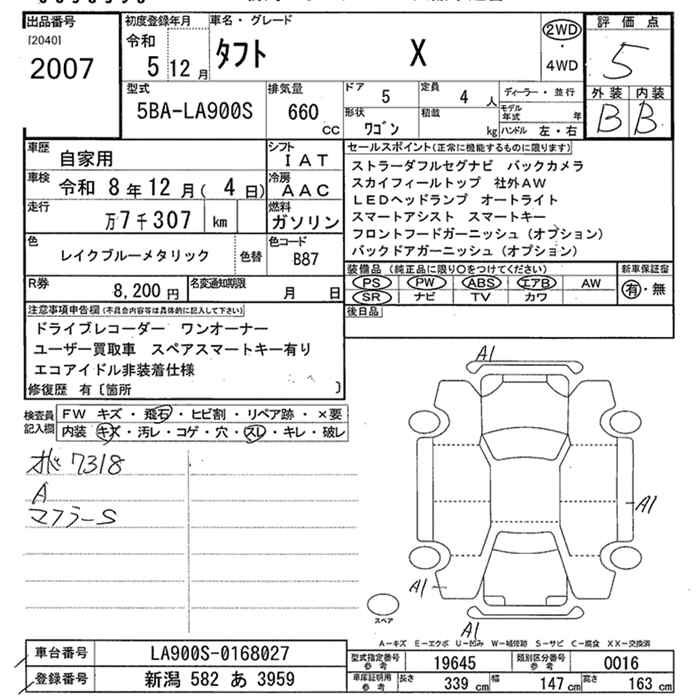 出品番号
[2040]
2007
初度登録年月
令和
5 12 月
車名・グレード
タフト X
2WD
・
4WD
評価点
5
外装 内装
B B
型式
5BA-LA900S
排気量
660
CC
ドア
5
定員
4 人
形状
ワゴン
積載
kg
ディーラー・並行
モデル年式 年
ハンドル 左・右
車歴
自家用
シフト
IAT
車検
令和 8年12月( 4日)
冷房
AAC
走行
万7千307 km
燃料
ガソリン
色
レイクブルーメタリック
色替
色コード
B87
R券
8,200 円
名変通知期限
月 日
セールスポイント(正常に機能するものに限ります)
ストラーダフルセグナビ バックカメラ
スカイフィールトップ 社外AW
LEDヘッドランプ オートライト
スマートアシスト スマートキー
フロントフードガーニッシュ(オプション)
バックドアガーニッシュ(オプション)
装備品(純正品に限り○をつけてください)
PS PW ABS エアB AW
SR ナビ TV カワ
新車保証書
有・無
後日品
注意事項申告欄(不具合内容等は具体的に記入して下さい)
ドライブレコーダー ワンオーナー
ユーザー買取車 スペアスマートキー有り
エコアイドル非装着仕様
修復歴 有〔箇所 〕
検査員
記入欄
FW キズ・飛石・ヒビ割・リペア跡・×要
内装 キズ・汚レ・コゲ・穴・スレ・キレ・破レ
7318
A
マフラーS
A1
A1
A1
A1
スペア
A-キズ E-エクボ U-凹み W-補修跡 S-サビ C-腐食 XX-交換済
車台番号
LA900S-0168027
登録番号
新潟 582 あ 3959
型式指定番号
参考
19645
類別区分番号
参考
0016
車庫証明用
参考
長さ 339 cm 幅 147 cm 高さ 163 cm